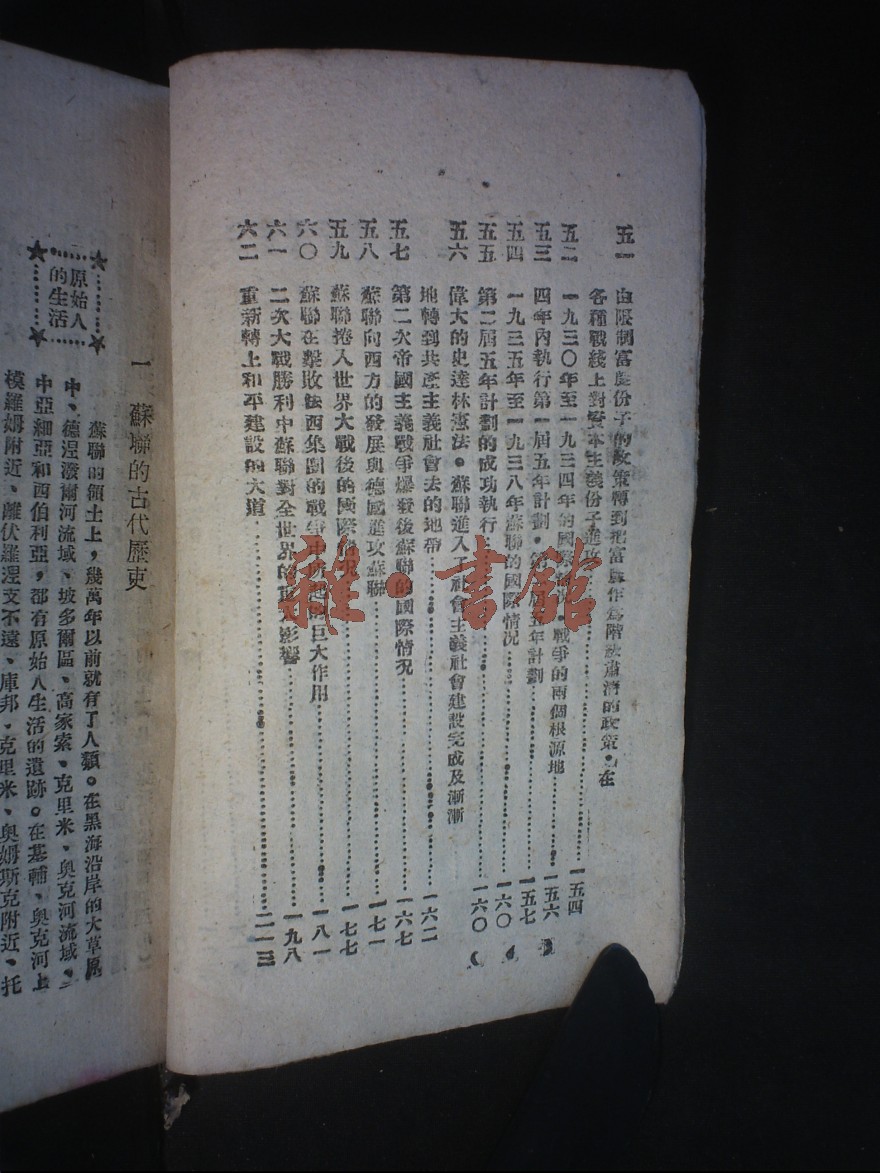 五一 由限制富農份子的政策轉到把富農作為階級肅清的政策，在
各種戰綫上對資本主義份子進攻…………一五四
五二 一九三〇年至一九三四年的國際情况。戰爭的兩個根源地…………一五六
五三 四年內執行第一屆五年計劃，第二屆五年計劃…………一五七
五四 一九三五年至一九三八年蘇聯的國際情况…………一六〇
五五 第二屆五年計劃的成功執行…………一六〇
五六 偉大的史達林憲法。蘇聯進入了社會主義社會建設完成及漸漸
地轉到共產主義社會法的地帶…………一六二
五七 第二次帝國主義戰爭爆發後蘇聯的國際情况…………一六七
五八 蘇聯向西方的發展與德國進攻蘇聯…………一七一
五九 蘇聯捲入世界大戰後的國際情况…………一七七
六〇 蘇聯在擊敗法西集團的戰爭中所起的巨大作用…………一八一
六一 二次大戰勝利中蘇聯對全世界的重大影響…………一九八
六二 重新轉上和平建設的大道…………二一三
一 蘇聯的古代歷史
原始人
的生活
蘇聯的領土上，幾萬年以前就有了人類。在黑海沿岸的大草原
中、德涅潑爾河流域、坡多爾區、高家索、克里米、奧克河流域、
中亞細亞和西伯利亞，都有原始人生活的遺跡。在基輔、奧克河上
模羅姆附近、離伏羅涅支不遠、庫邦、克里米、奧姆斯克附近、托
雜·書館